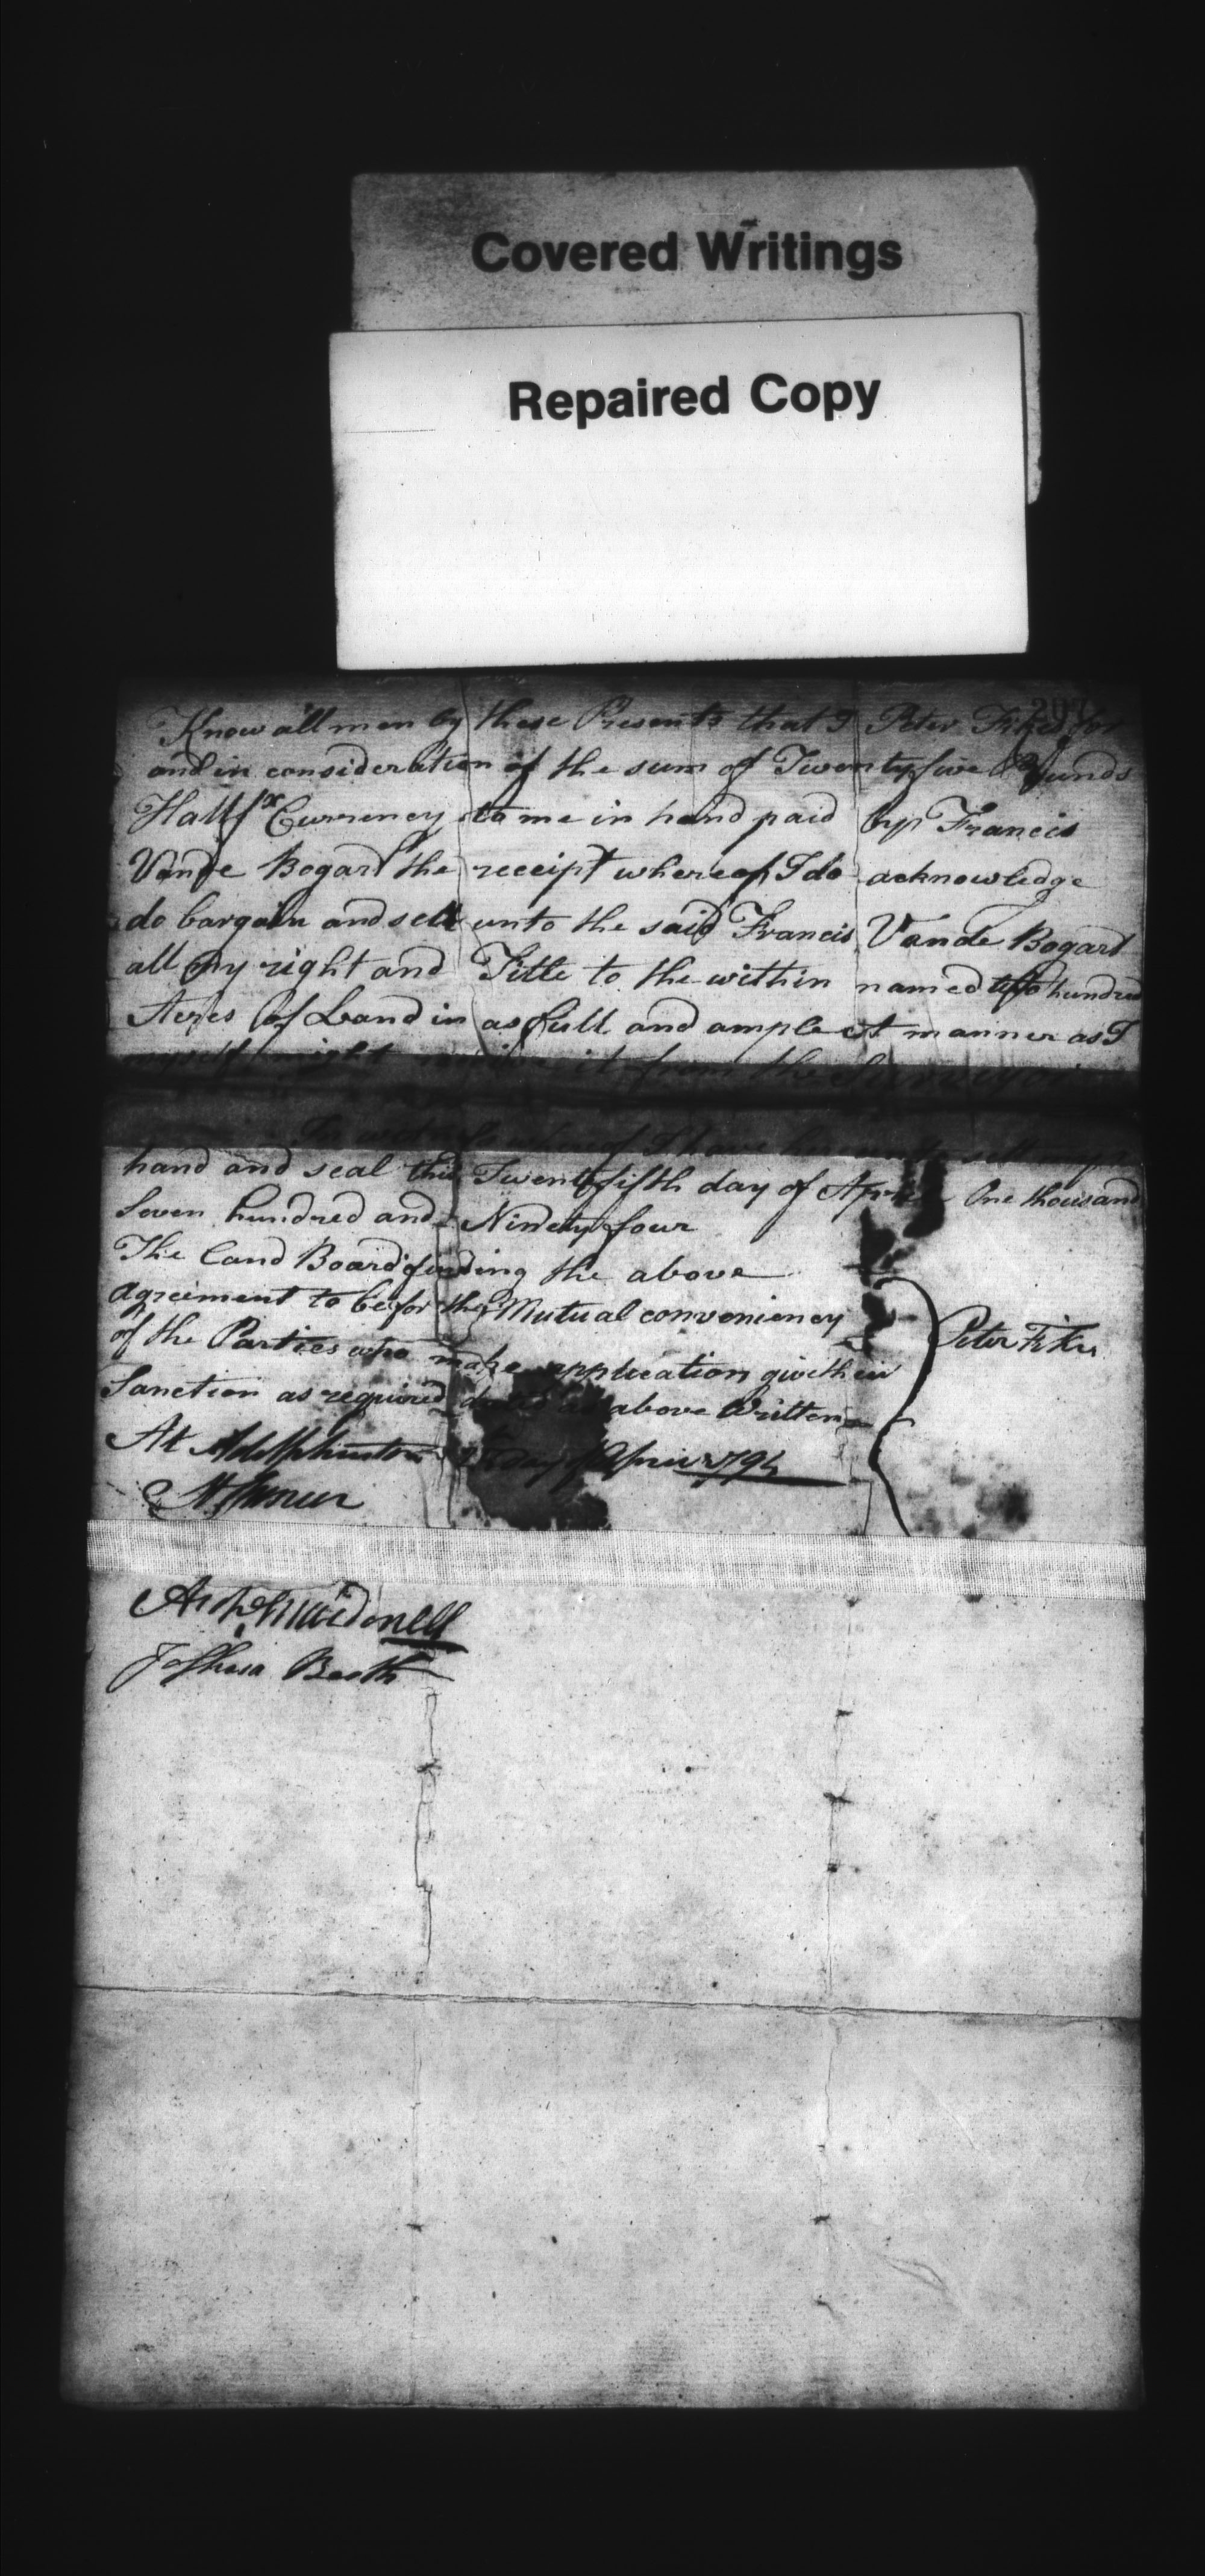 Covered Writings
Repaired Copy
Know all men by these Presents that I Peter Fikes for
and in consideration of the sum of Twenty five Pounds
Halifx Currency to me in hand paid by Francis
Vande Bogart the receipt whereof I do acknowledge
do bargain and sell unto the said Francis Vande Bogart
all my right and Title to the within named two hundred
Acres of Land in as full and amplest manner as I
right it from the Surveyor
In witness whereof I have sett my
hand and seal this Twenty fifth day of April One thousand
Seven hundred and Ninety four
The Land Board finding the above
agreement to be for the Mutual conveniency
of the Parties who make application give their
Sanction as required dated as above Written
At Adolphustown 25 day of April 1794
Peter Fikes
Archd Macdonell
Joshua Booth